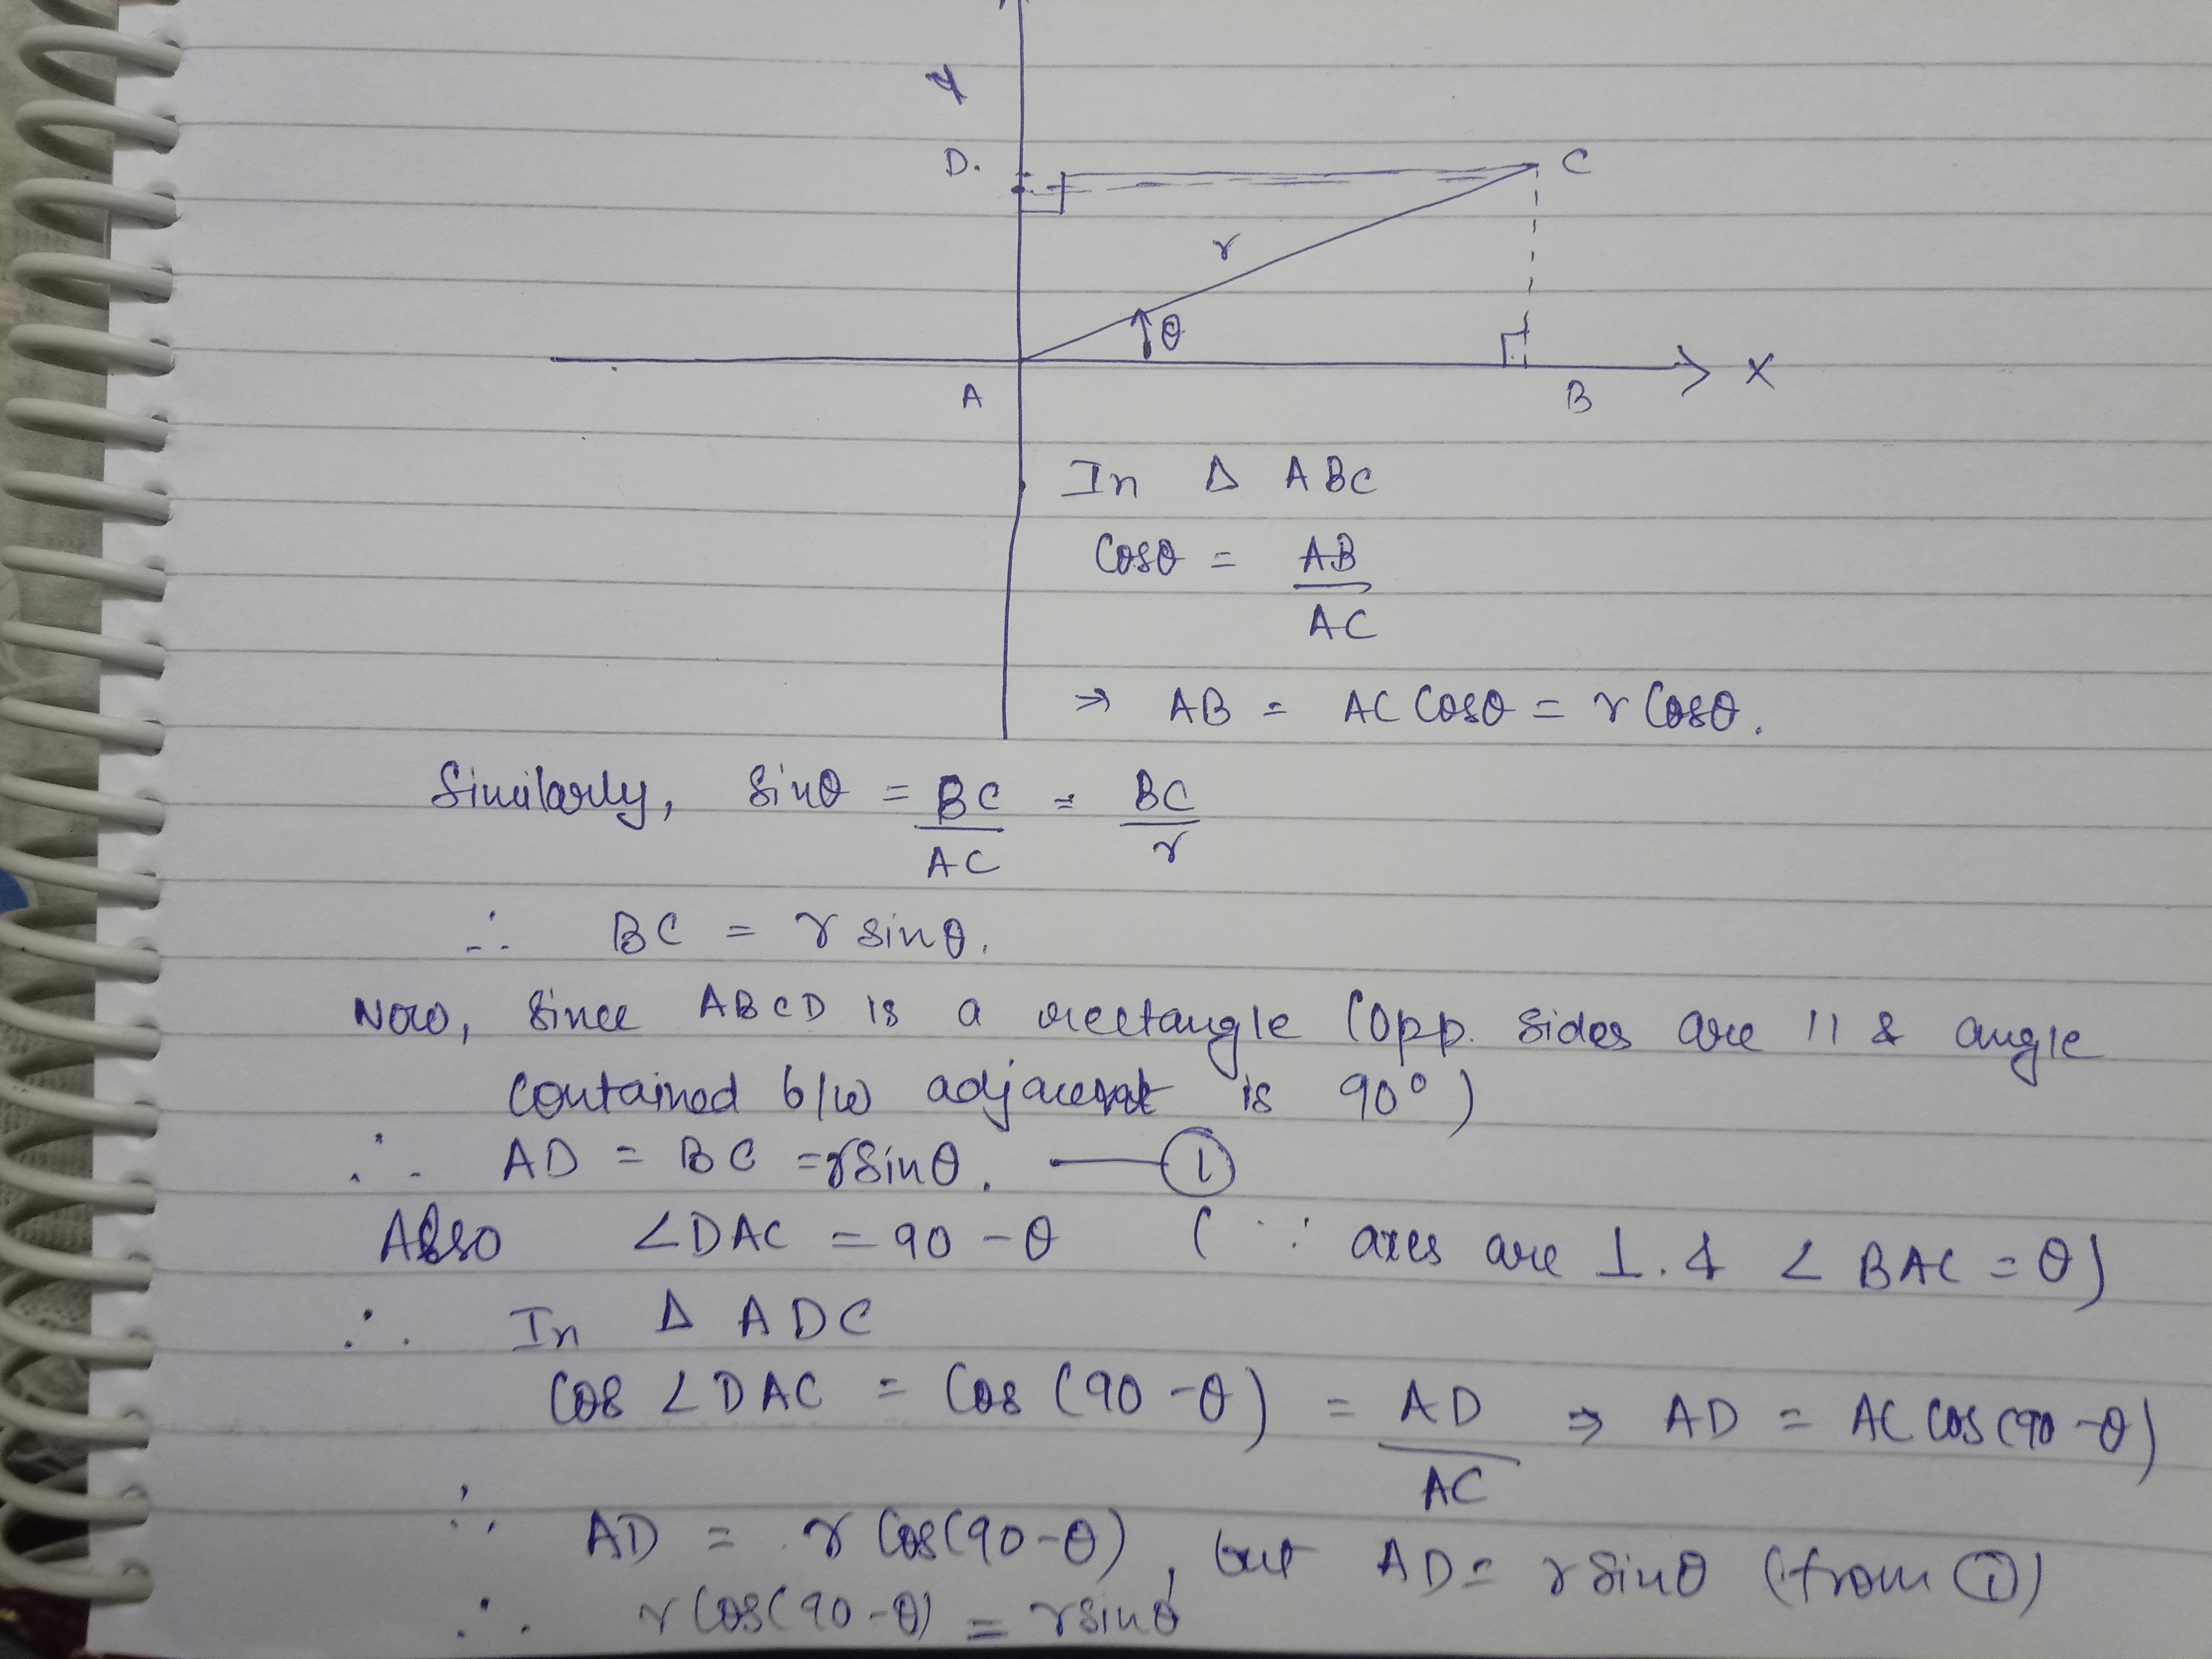 Y
D.
C
r
θ
A
B
X
In Δ ABC
Cosθ = AB
AC
⇒ AB = AC Cosθ = r Cosθ.
Similarly, Sinθ = BC = BC
AC r
∴ BC = r sinθ.
Now, Since ABCD is a rectangle (opp. sides are || & angle
contained b/w adjacent is 90°)
∴ AD = BC = r Sinθ. — ①
Also ∠DAC = 90 - θ (∵ axes are ⊥. & ∠BAC = θ)
∴ In Δ ADC
Cos ∠DAC = Cos (90 - θ) = AD ⇒ AD = AC Cos (90 - θ)
AC
∴ AD = r Cos(90 - θ), but AD = r Sinθ (from ①)
∴ r Cos(90 - θ) = r sinθ